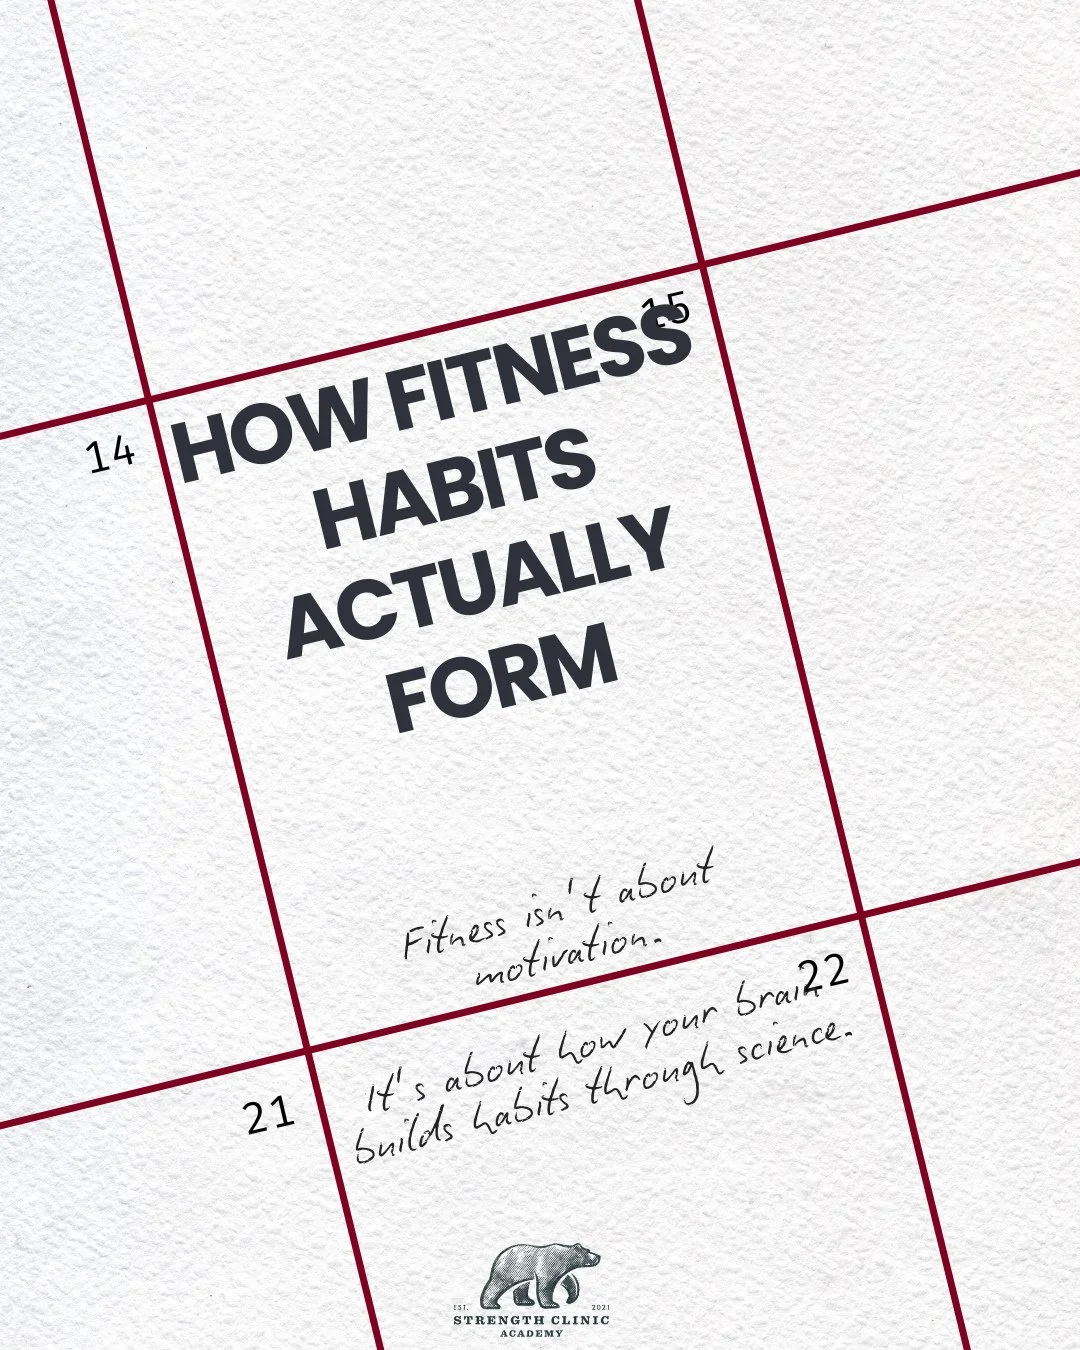 15
HOW FITNESS
HABITS
ACTUALLY
FORM
14
Fitness isn't about
motivation.
22
It's about how your brain
builds habits through science.
21
EST. 2021
STRENGTH CLINIC
ACADEMY